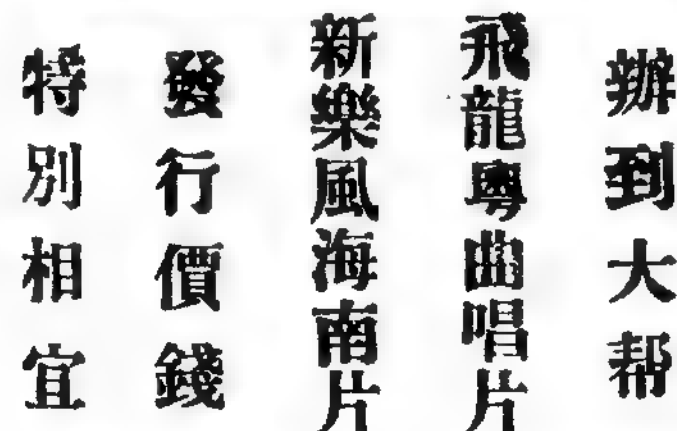 辦到大帮
飛龍粵曲唱片
新樂風海南片
發行價錢
特別相宜